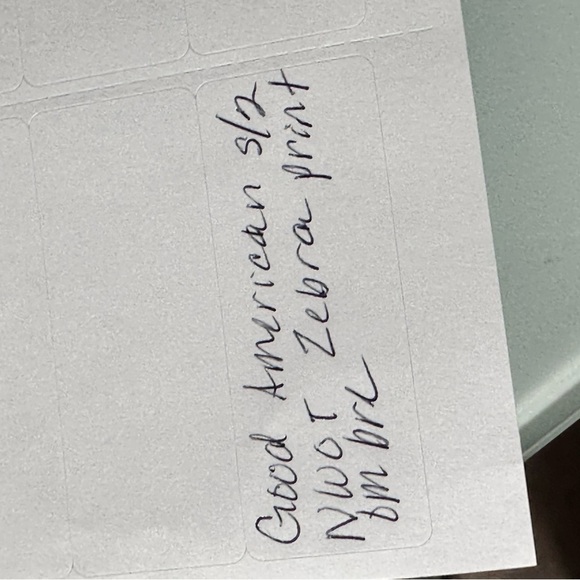 Good American S/2
NWOT Zebra print
ombre